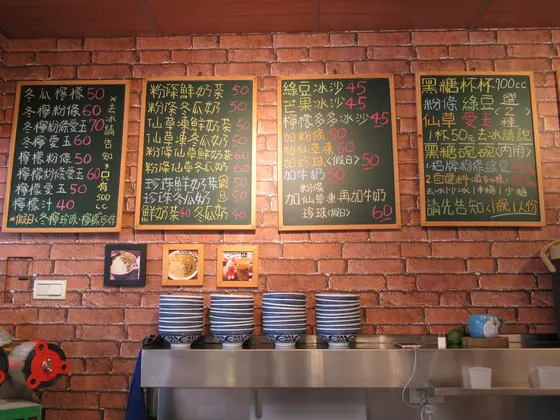 冬瓜檸檬 50
冬檸粉條 60
冬檸粉條愛玉 70
冬檸愛玉 60
檸檬粉條 50
檸檬粉條愛玉 60
檸檬愛玉 50
檸檬汁 40
*假日<冬檸珍珠、檸檬珍珠
*去冰請告知,只有500cc
粉條鮮奶茶 50
粉條冬瓜奶 50
仙草凍鮮奶茶 50
仙草凍冬瓜奶 50
粉條仙草凍鮮奶茶 60
粉條仙草凍冬瓜奶 60
珍珠鮮奶茶 50
珍珠冬瓜奶 50
鮮奶茶 40 冬瓜奶 40
綠豆冰沙 45
芒果冰沙 45
檸檬多多冰沙 45
加粉條 50
加仙草凍 50
加珍珠<假日> 50
加牛奶 50
粉條
加仙草凍 再加牛奶
珍珠<假日> 60
黑糖杯杯 700cc
粉條 綠豆 選
仙草 愛玉 種
1杯50元 去冰請說
黑糖碗碗<內用>
招牌粉條綠豆
去冰 少冰 半糖 少糖
請先告知<1碗1人份